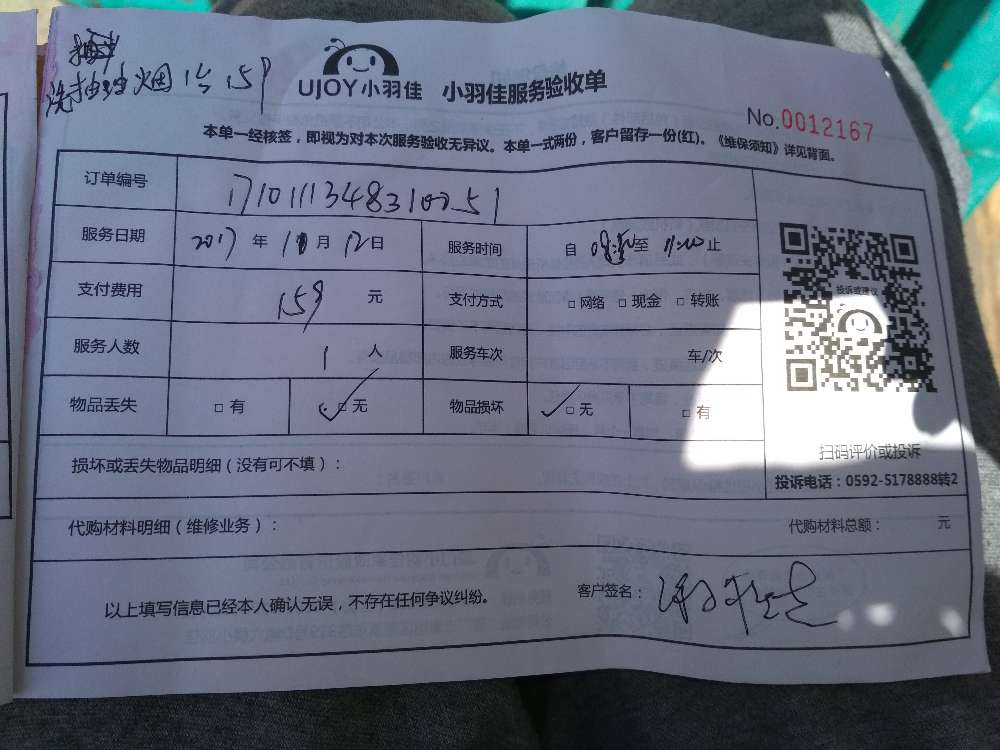 洗抽油烟 159
UJOY小羽佳 小羽佳服务验收单
No.0012167
本单一经核签，即视为对本次服务验收无异议。本单一式两份，客户留存一份(红)。《维保须知》详见背面。
订单编号
服务日期 2017 年 10 月 12 日 服务时间 自 至 11:00 止
支付费用 159 元 支付方式 □ 网络 □ 现金 □ 转账
服务人数 1 人 服务车次 车/次
物品丢失 □ 有 ✓□ 无 物品损坏 ✓□ 无 □ 有
投诉或建议
扫码评价或投诉
投诉电话：0592-5178888转2
损坏或丢失物品明细（没有可不填）：
代购材料明细（维修业务）： 代购材料总额： 元
以上填写信息已经本人确认无误，不存在任何争议纠纷。 客户签名：